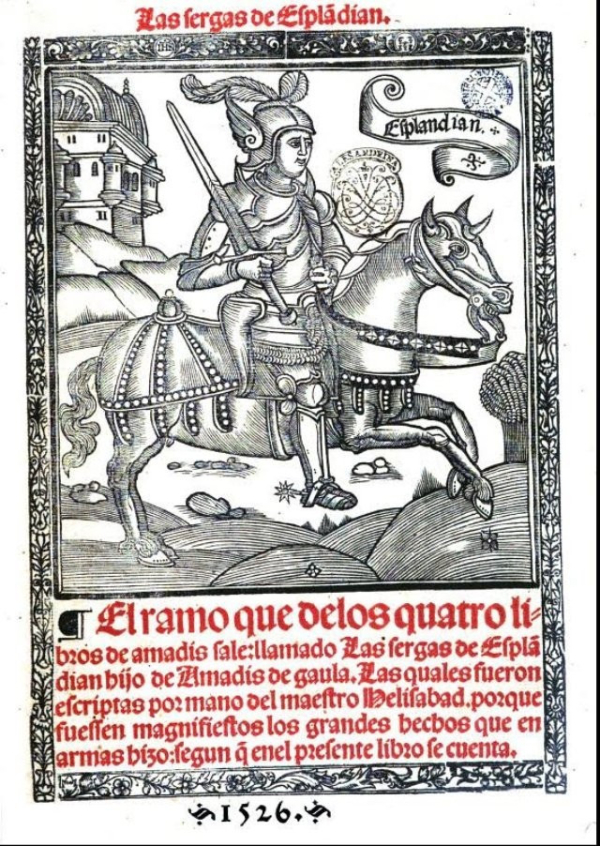 Las sergas de Esplãdian.
Esplandian.
ALEXANDRINA
¶ El ramo que delos quatro li-
bros de amadis sale: llamado Las sergas de Esplã
dian hijo de Amadis de gaula. Las quales fueron
escriptas por mano del maestro Helisabad. porque
fuessen magnifiestos los grandes hechos que en
armas hizo: segun q̃ enel presente libro se cuenta.
1526.